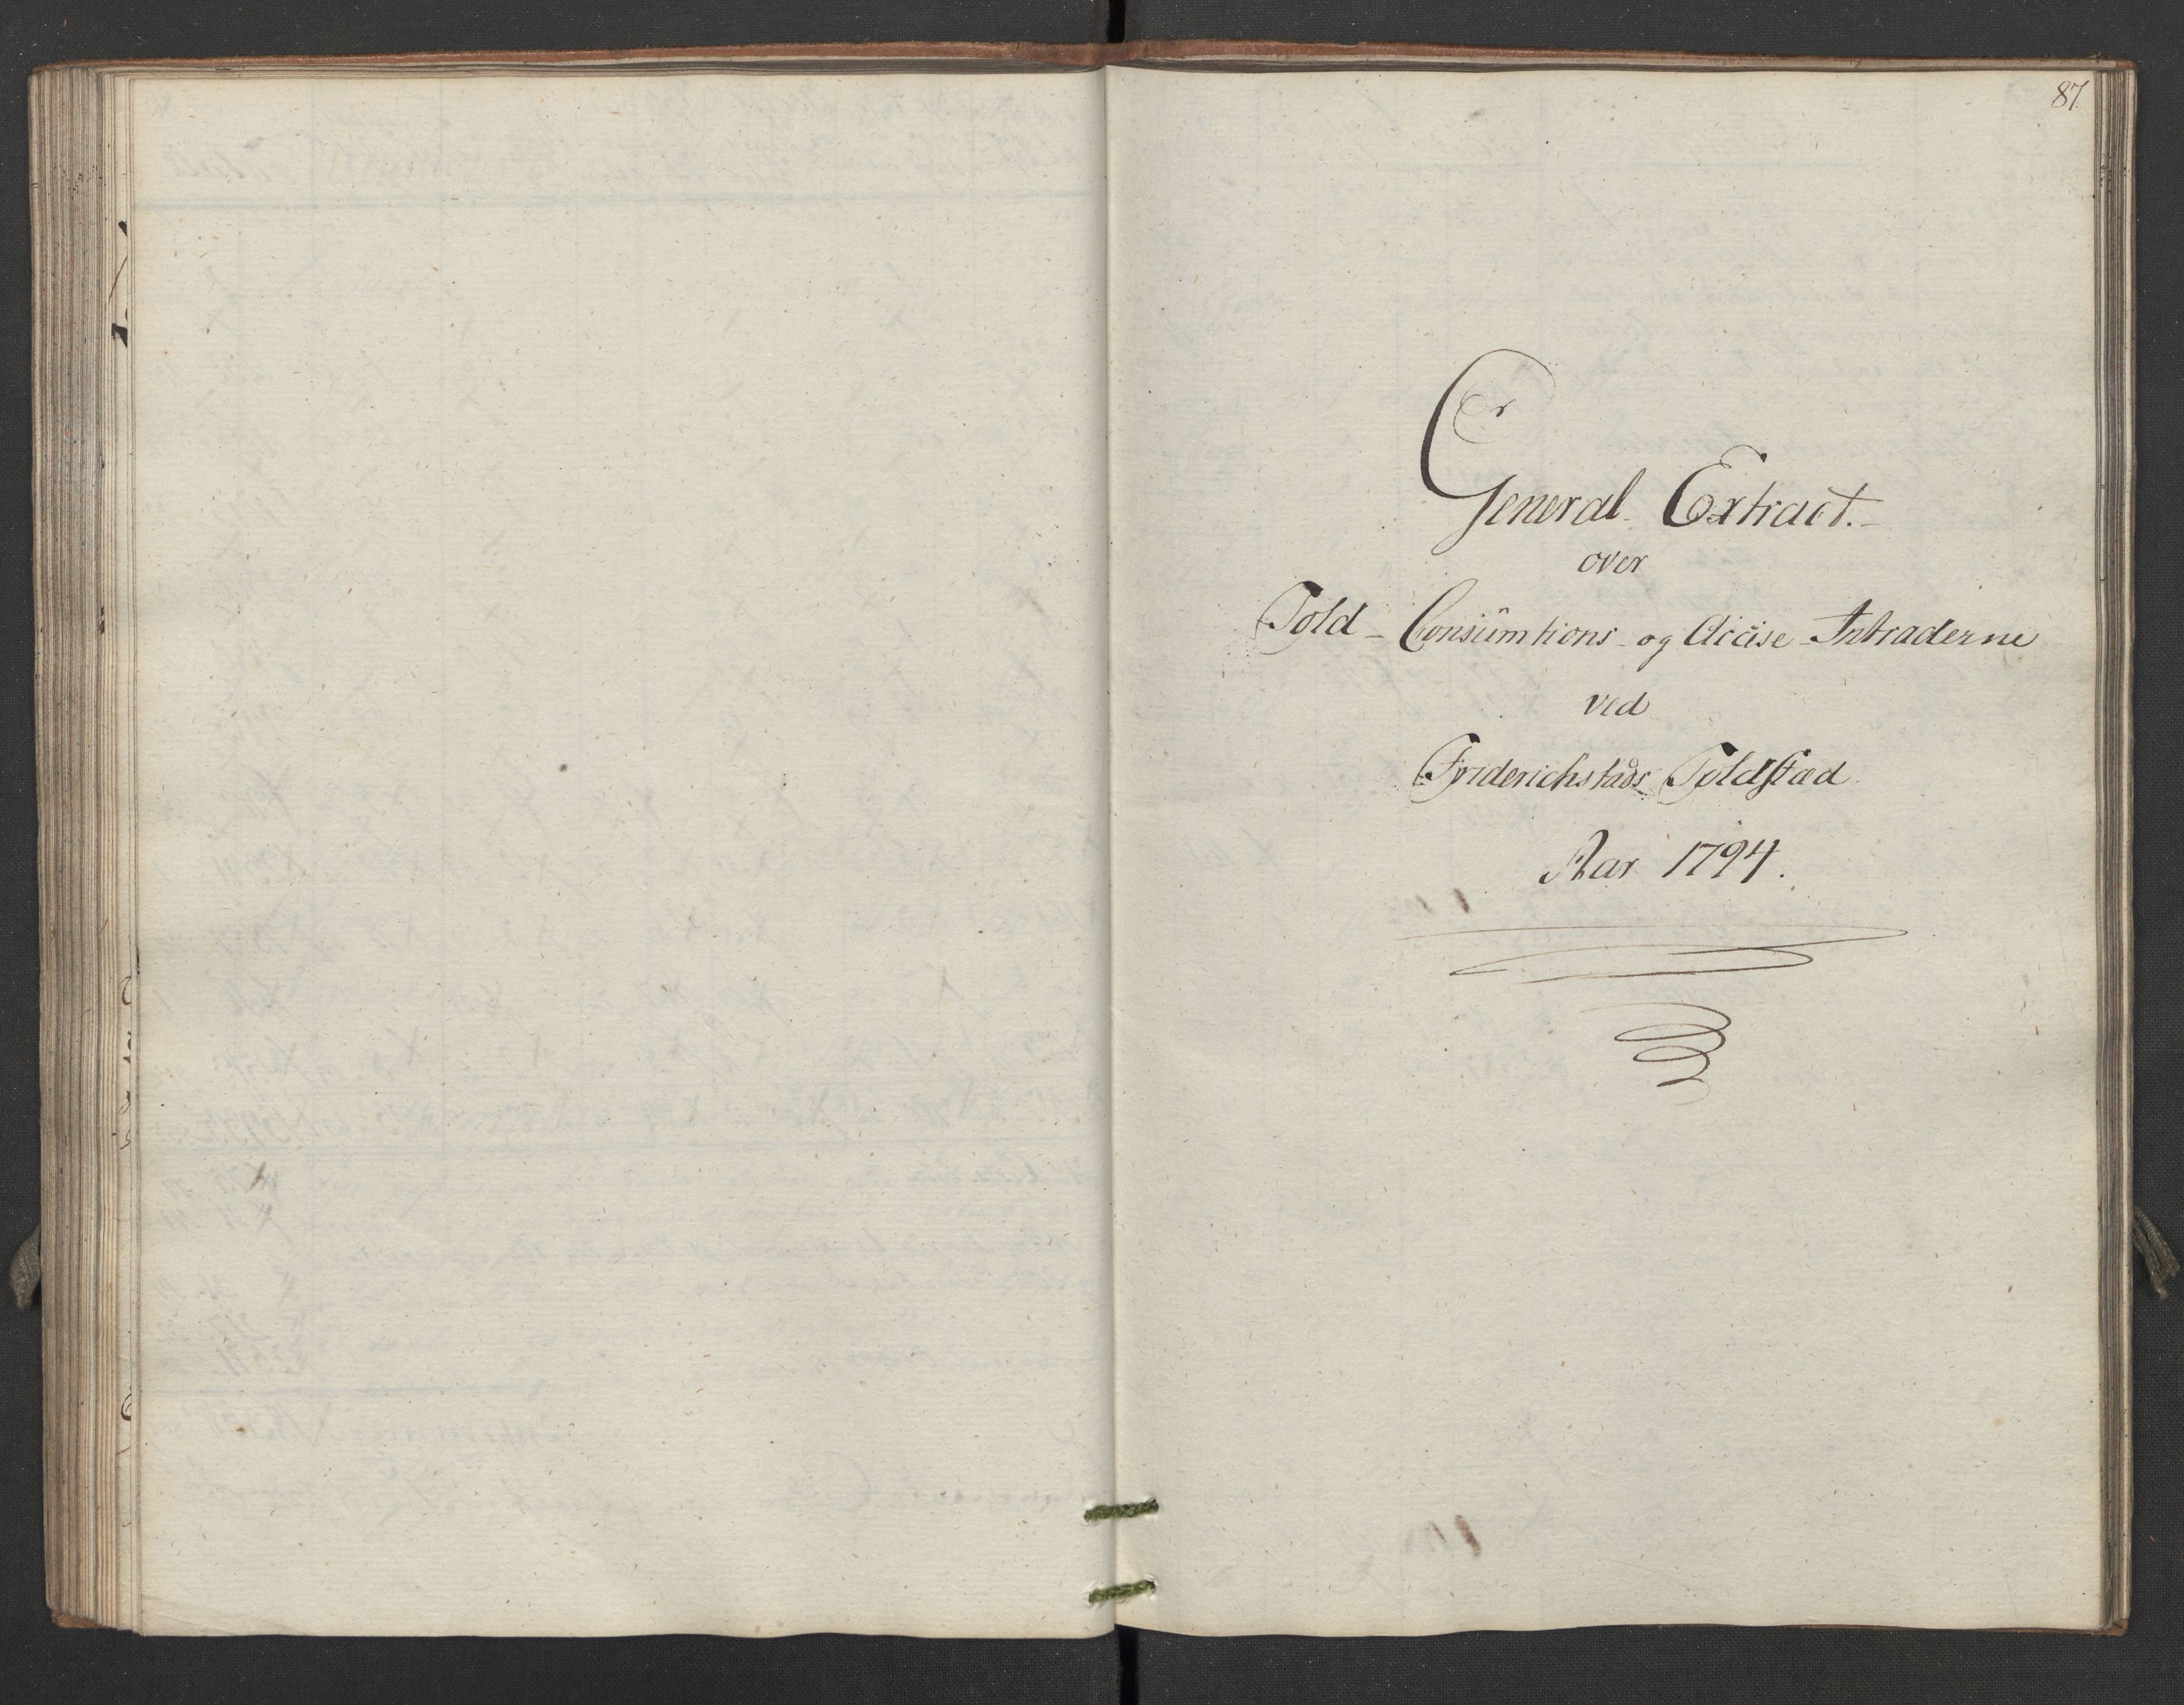 87.
General Extract.
over
Told - Consumtions - og Accise - Intraderne
ved
Friderichstads Toldstæd
Aar 1794.